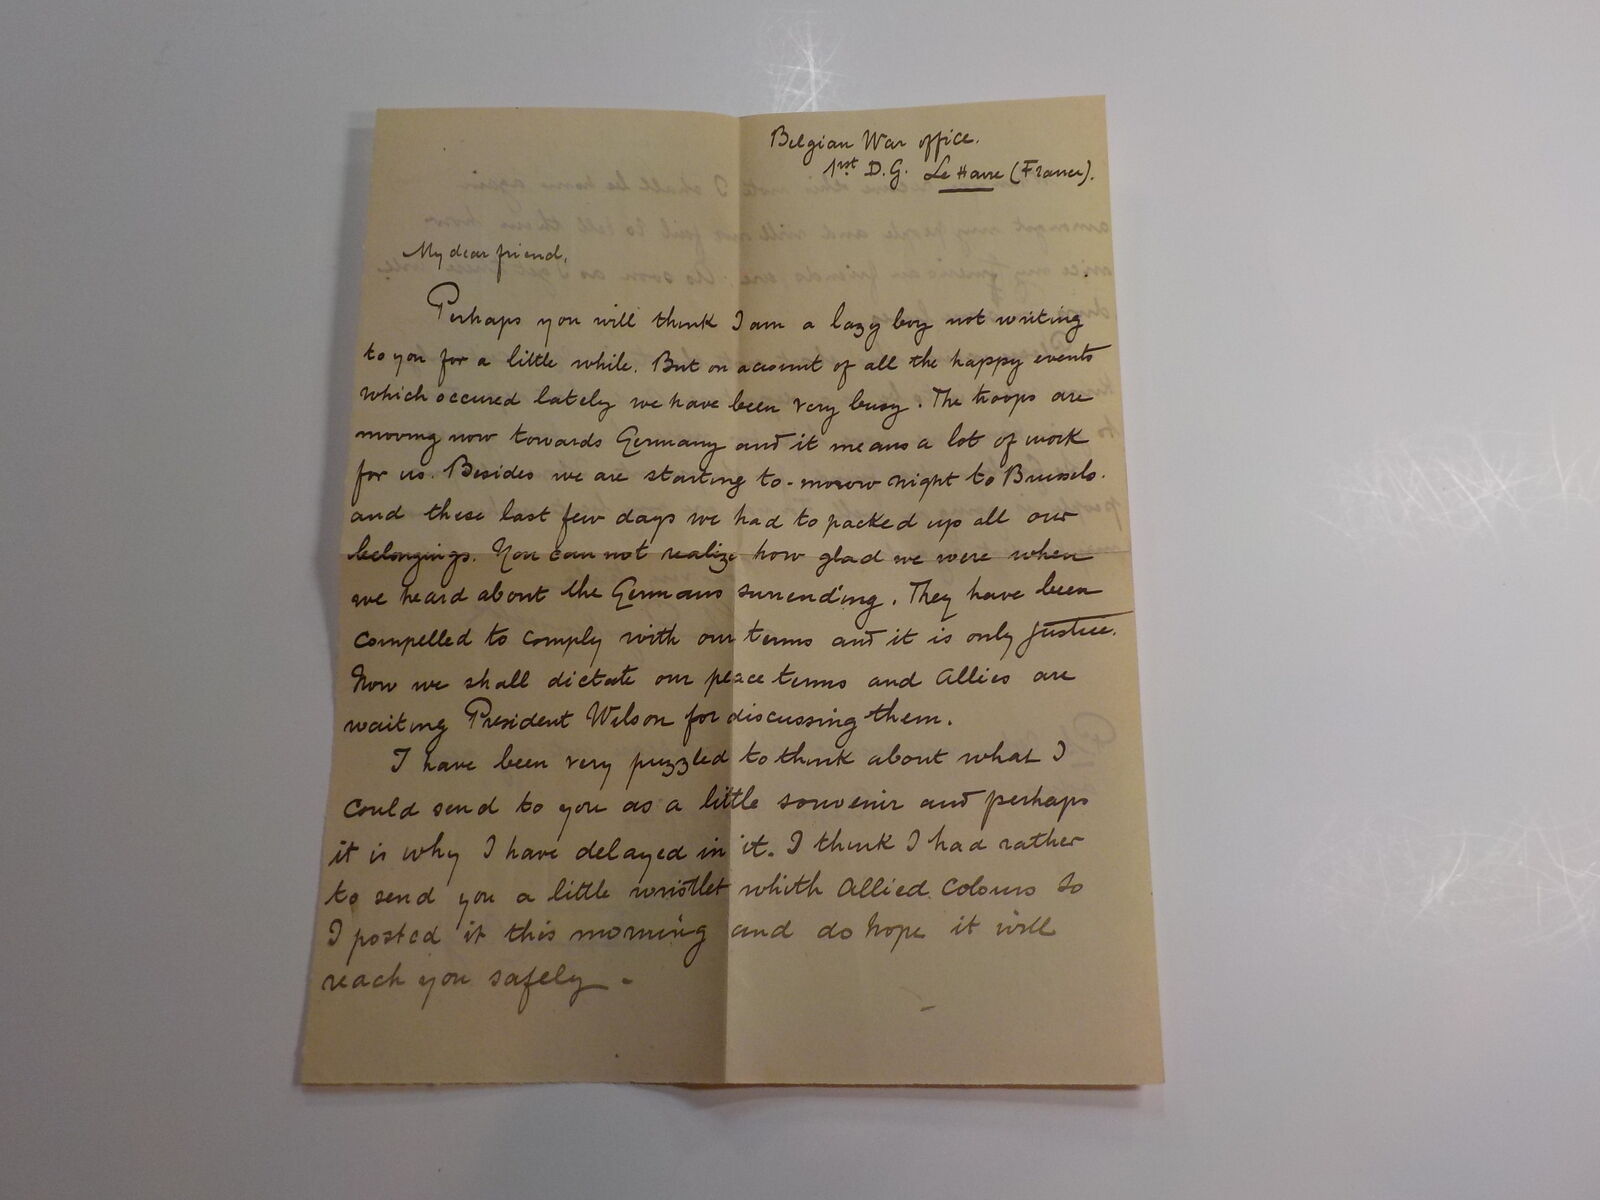 Belgian War office.
1rst D.G. Le Havre (France).
My dear friend,
Perhaps you will think I am a lazy boy not writing
to you for a little while. But on account of all the happy events
which occured lately we have been very busy. The troops are
moving now towards Germany and it means a lot of work
for us. Besides we are starting to-morow night to Brussels.
and these last few days we had to packed up all our
belongings. You can not realize how glad we were when
we heard about the Germans surrending. They have been
compelled to comply with our terms and it is only justice.
Now we shall dictate our peace terms and Allies are
waiting President Wilson for discussing them.
I have been very puzzled to think about what I
could send to you as a little souvenir and perhaps
it is why I have delayed in it. I think I had rather
to send you a little wristlet whith Allied Colours so
I posted it this morning and do hope it will
reach you safely -